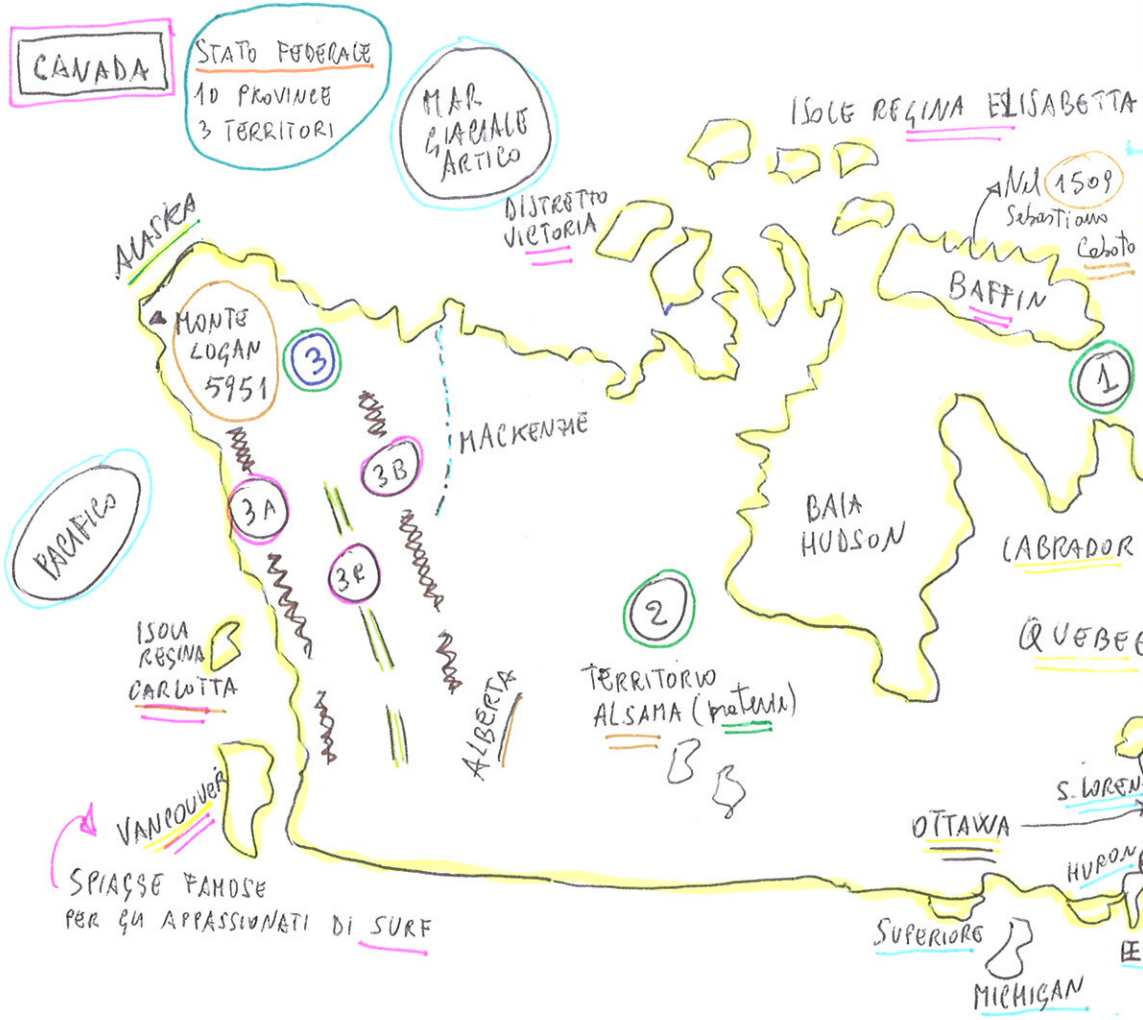 CANADA
STATO FEDERALE
10 PROVINCE
3 TERRITORI
MAR
GLACIALE
ARTICO
ISOLE REGINA ELISABETTA
Nel 1509
Sebastiano
Caboto
DISTRETTO
VICTORIA
BAFFIN
ALASKA
MONTE
LOGAN
5951
3
1
MACKENZIE
3B
3A
3R
PACIFICO
BAIA
HUDSON
LABRADOR
2
QUEBEC
ISOLA
REGINA
CARLOTTA
TERRITORIO
ALSAMA (praterie)
ALBERTA
VANCOUVER
S. LOREN
OTTAWA
HURON
SPIAGGE FAMOSE
PER GLI APPASSIONATI DI SURF
SUPERIORE
E
MICHIGAN